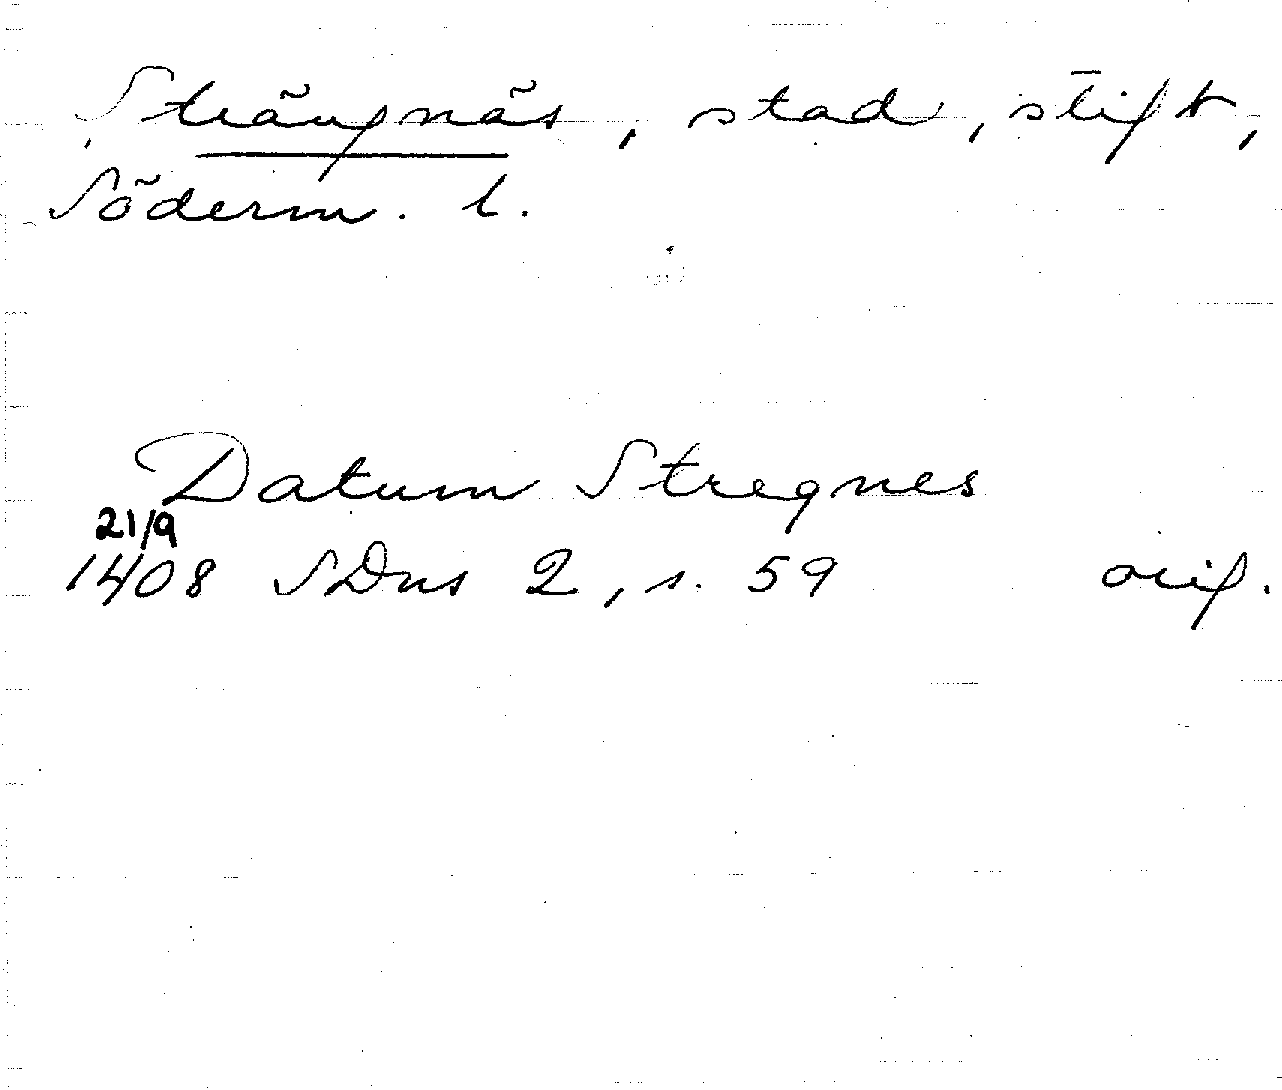 Strängnäs, stad, stift,
Söderm. l.
Datum Stregnes
21/9
1408 SDns 2, s. 59 orig.